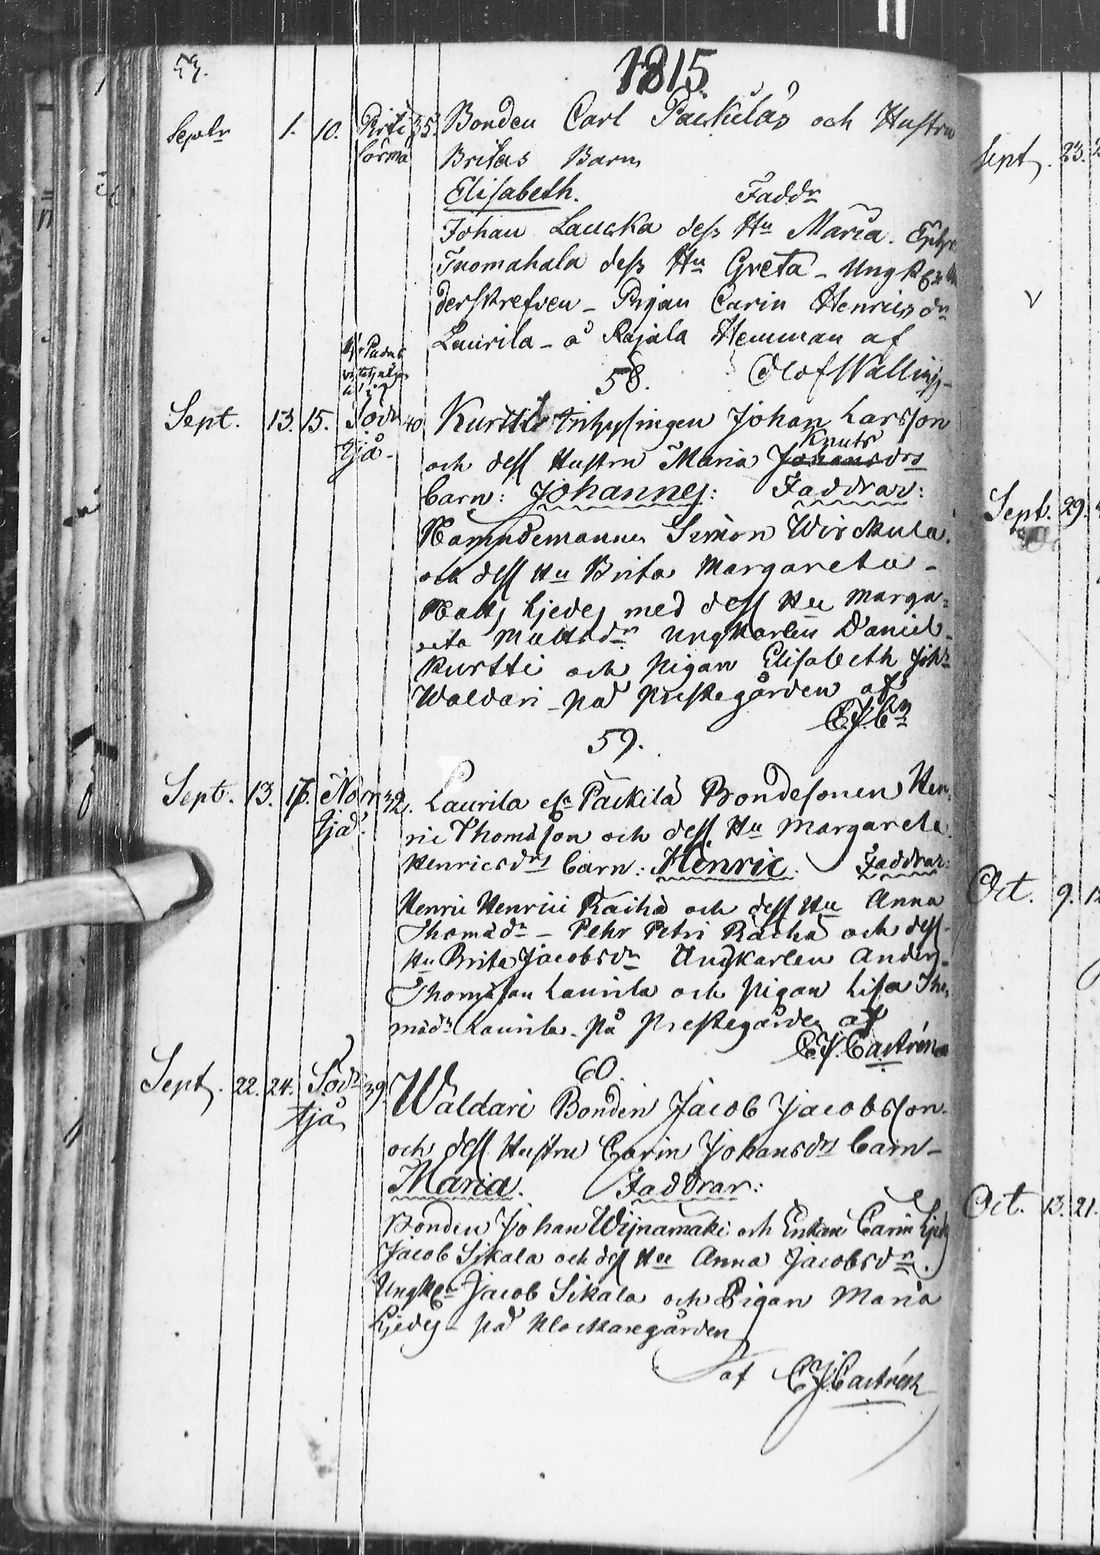 1815.
57.
Septr 1. 10. 35. Bonden Carl Päckilas och Hustru
Britas Barn
Elisabeth. Faddr
Johan Laucka dess Hu Maria.
Tuomahala dess Hu Greta - Ungk
derskrefven - Pigan Carin Henricsdr
Laurila - å Rajala Hemman af
Olof Walling
58.
Sept. 13. 15. Södr 40 Kurtti Inhysingen Johan Larsson
Knuts
och dess Hustru Maria Johansdrs
tjå -
barn: Johannes: Faddrar:
Nämndemannen Simon Wirckula
och dess Hu Brita Margareta -
Matts Ljedes med dess Hu Marga=
reta Mattsdr Ungkarlen Daniel
Kurtti och pigan Elisabeth Johsdr
Waldari - på prestegården af
EJCn
59.
Sept. 13. 17. Norr 32. Laurila Päckilä Bondesonen Hen=
tjå. ric Thomasson och dess Hu Margareta
Henricsdrs barn: Henric. Faddrar:
Henric Henrici Räihä och dess Hu Anna
Thomædr - Pehr Petri Rächä och dess
Hu Brita Jacobsdr Ungkarlen Anders
Thomasson Laurila och pigan Lisa Tho
mædr Laurila - på prestegården af
EJCastrén
60.
Sept. 22. 24. Södr 39 Waldari Bonden Jacob Jacobsson
tjå och dess Hustru Carin Johansdrs barn -
Maria. Faddrar:
Bonden Johan Wijnamaki och Enkan Carin Ljedes
Jacob Sikala och dess Hu Anna Jacobsdr.
Ungkn Jacob Sikala och Pigan Maria
Ljedes - på klockaregården
af EJCastrén
Sept. 23.
Sept. 29.
Oct. 9. 12
Oct. 13. 21.